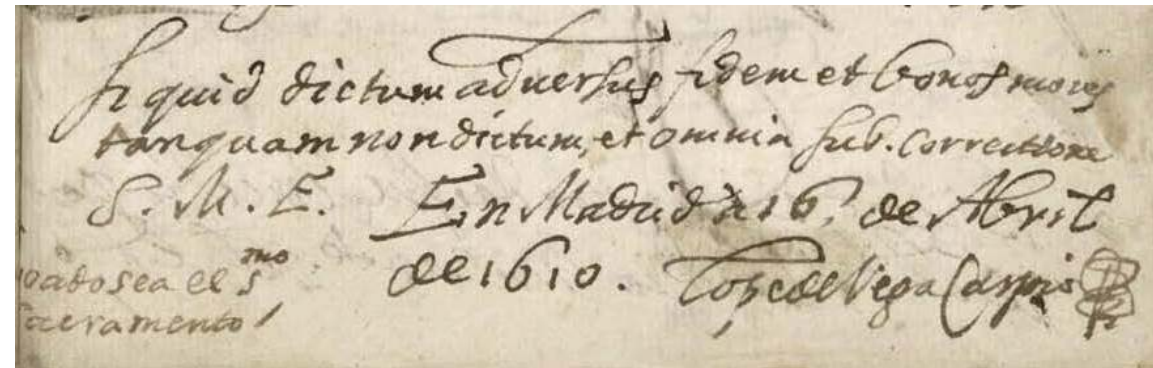 si quid dictum adversus fidem et bonos mores
tanquam non dictum, et omnia sub. correctione
S. M. E. En Madrid a 16. de Abril
de 1610. Lope de Vega Carpio
oado sea el s.mo
sacramento